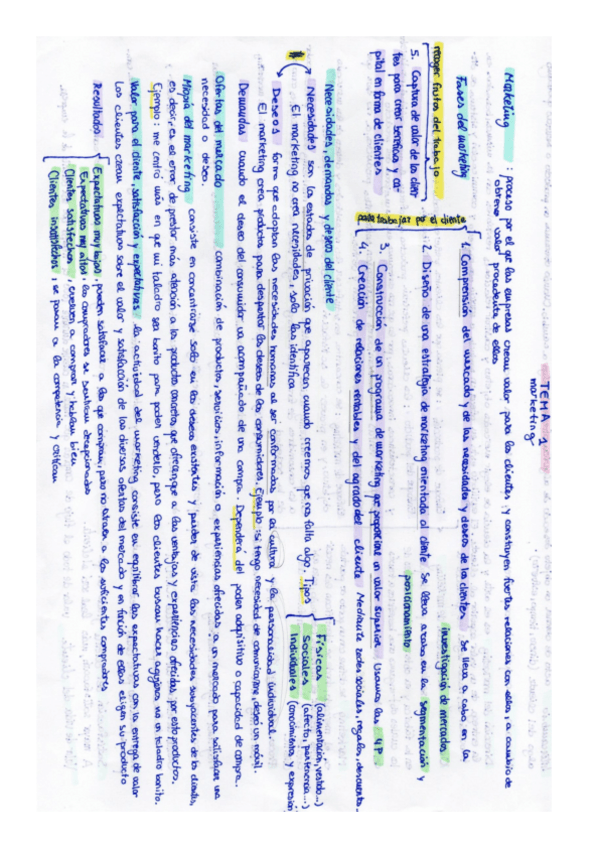 TEMA 1
marketing
Marketing: proceso por el que las empresas crean valor para los clientes y construyen fuertes relaciones con ellos, a cambio de
obtener valor procedente de ellos
Fases del marketing
para trabajar por el cliente
1. Comprensión del mercado y de las necesidades y deseos de los clientes Se lleva a cabo en la
investigación de mercados
2. Diseño de una estrategia de marketing orientada al cliente Se lleva a cabo en la segmentación y
posicionamiento
3. Construcción de un programa de marketing que proporcione un valor superior Usamos las 4P
4. Creación de relaciones rentables y del agrado del cliente Mediante redes sociales, regalos, descuentos.
recoger frutos del trabajo
5. Captura de valor de los clien
tes para crear beneficios y ca
pital en forma de clientes
Necesidades, demandas y deseos del cliente
Necesidades son los estados de privación que aparecen cuando creemos que nos falta algo. Tipos
Físicas (alimentación, vestido...)
Sociales (afecto, pertenencia...)
Individuales (conocimiento y expresión
El marketing no crea necesidades, solo las identifica
Deseos forma que adoptan las necesidades humanas al ser conformadas por la cultura y la personalidad individual.
El marketing crea productos para despertar los deseos de los consumidores. Ejemplo: si tengo necesidad de comunicarme, deseo un móvil.
Demandas cuando el deseo del consumidor va acompañado de una compra. Dependerá del poder adquisitivo o capacidad de compra.
Ofertas del mercado combinación de productos, servicios, información o experiencias ofrecidos a un mercado para satisfacer una
necesidad o deseo.
Miopía del marketing consiste en concentrarse solo en los deseos existentes y perder de vista las necesidades subyacentes de los clientes,
es decir, es el error de prestar más atención a los productos concretos que ofrecen que a las ventajas y experiencias ofrecidas por estos productos.
Ejemplo: me centro más en que mi taladro sea bonito para poder venderlo, pero los clientes buscan hacer agujeros no un taladro bonito.
Valor para el cliente, satisfacción y expectativas la actividad del marketing consiste en equilibrar las expectativas con la entrega de valor
Los clientes crean expectativas sobre el valor y satisfacción de las diversas ofertas del mercado y en función de ellas eligen su producto
Resultados
Expectativas muy bajas: pueden satisfacer a los que compran, pero no atraen a los suficientes compradores
Expectativas muy altas: los compradores se sentirán decepcionados
Clientes satisfechos, vuelven a comprar y hablan bien
Clientes insatisfechos, se pasan a la competencia y critican